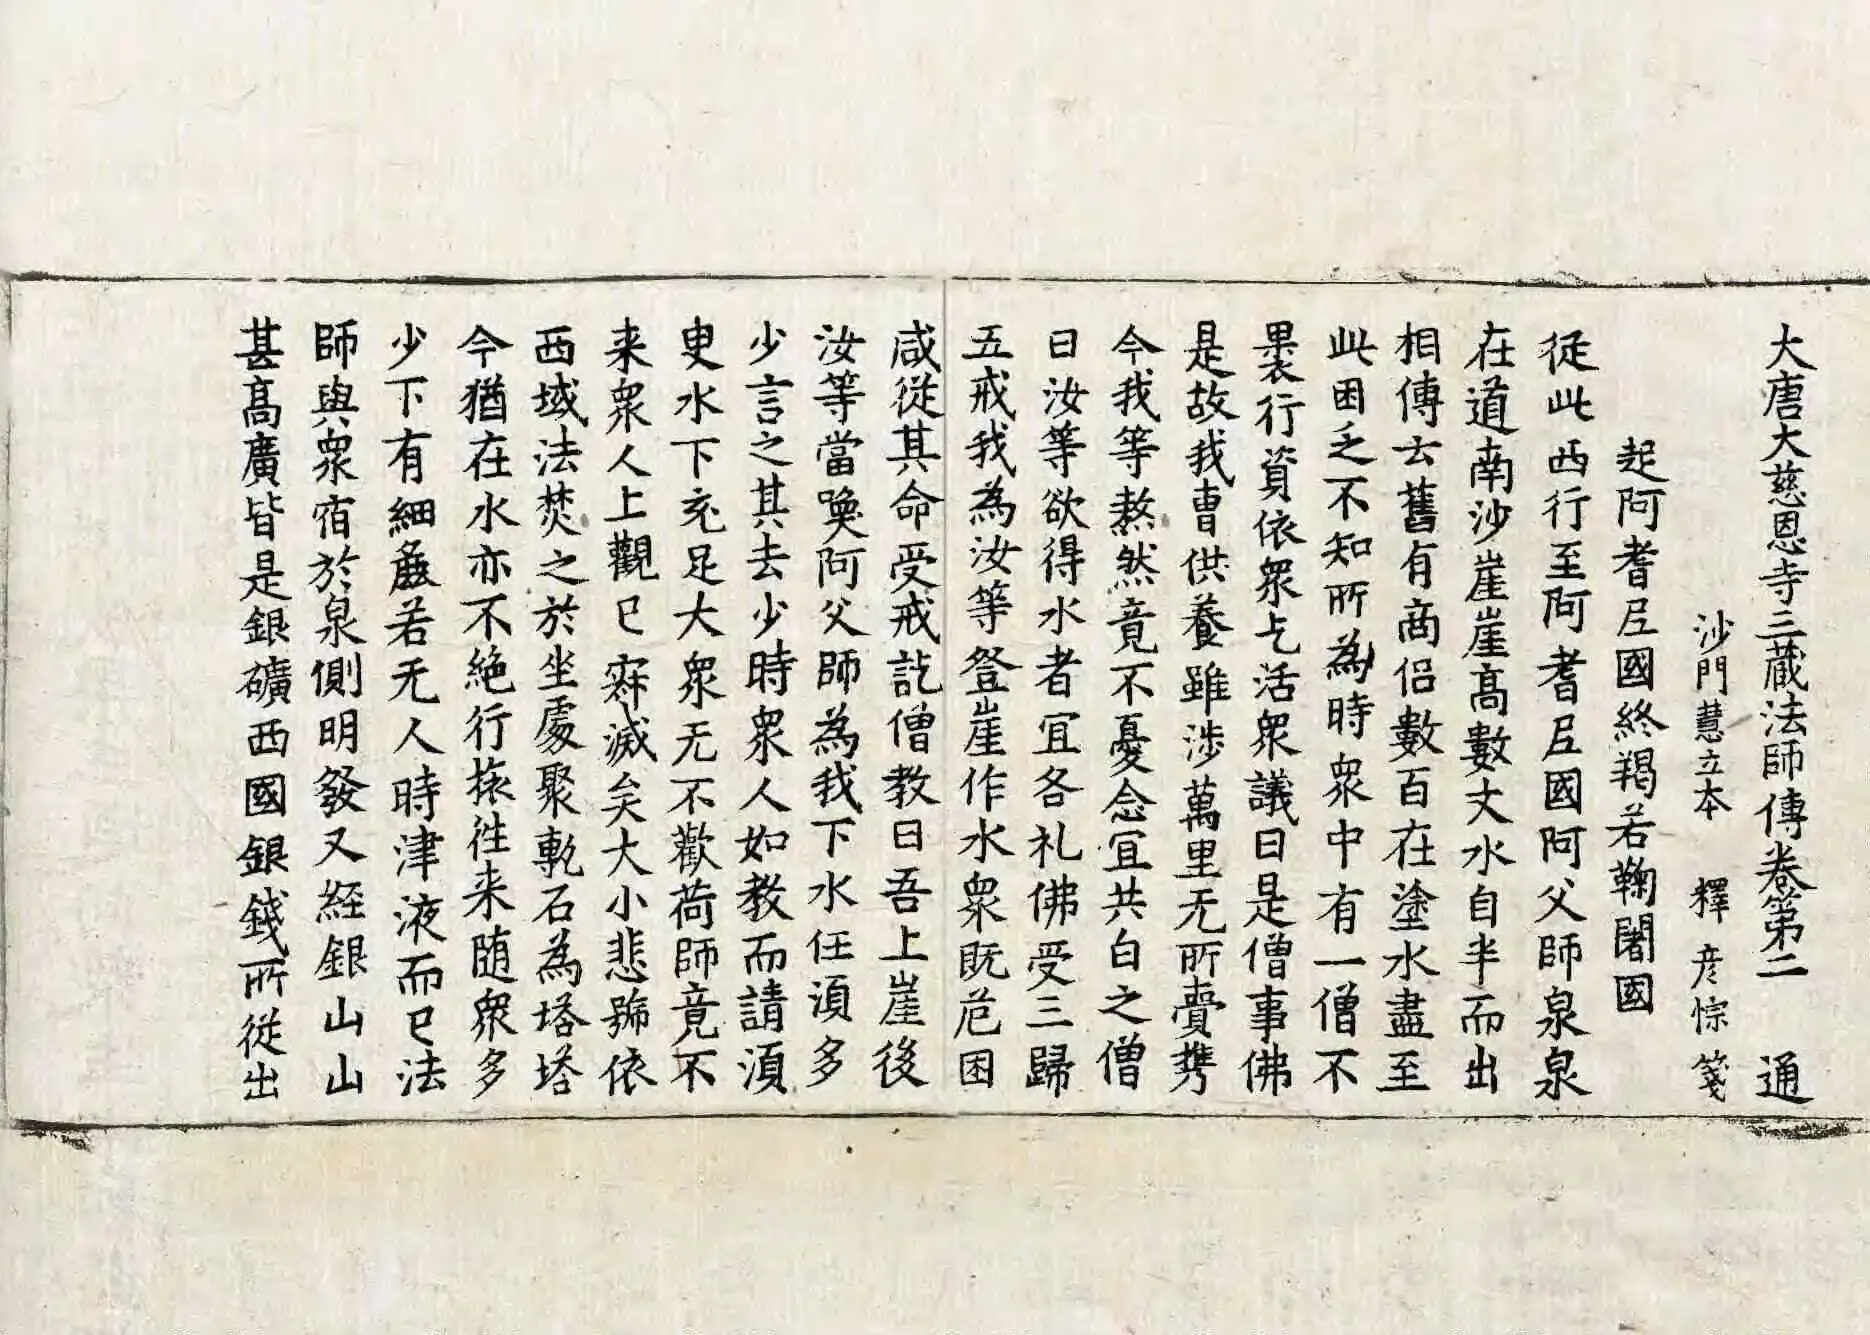 大唐大慈恩寺三蔵法師傳卷第二　通
沙門慧立本　釋彦悰箋
起阿耆尼國終羯若鞠闍國
従此西行至阿耆尼國阿父師泉泉
在道南沙崖崖高數丈水自半而出
相傳云舊有商侶數百在塗水盡至
此困乏不知所為時衆中有一僧不
褁行資依衆乞活衆議曰是僧事佛
是故我曹供養雖渉萬里无所賷攜
今我等熬然竟不憂念冝共白之僧
曰汝等欲得水者冝各礼佛受三歸
五戒我為汝等登崖作水衆既危困
咸従其命受戒訖僧教曰吾上崖後
汝等當喚阿父師為我下水任湏多
少言之其去少時衆人如教而請湏
臾水下充足大衆无不歡荷師竟不
来衆人上觀已寂滅矣大小悲號依
西域法焚之於坐處聚甎石為塔塔
今猶在水亦不絶行旅往来随衆多
少下有細麁若无人時津液而已法
師與衆宿於泉側明發又經銀山山
甚髙廣皆是銀礦西國銀錢所従出